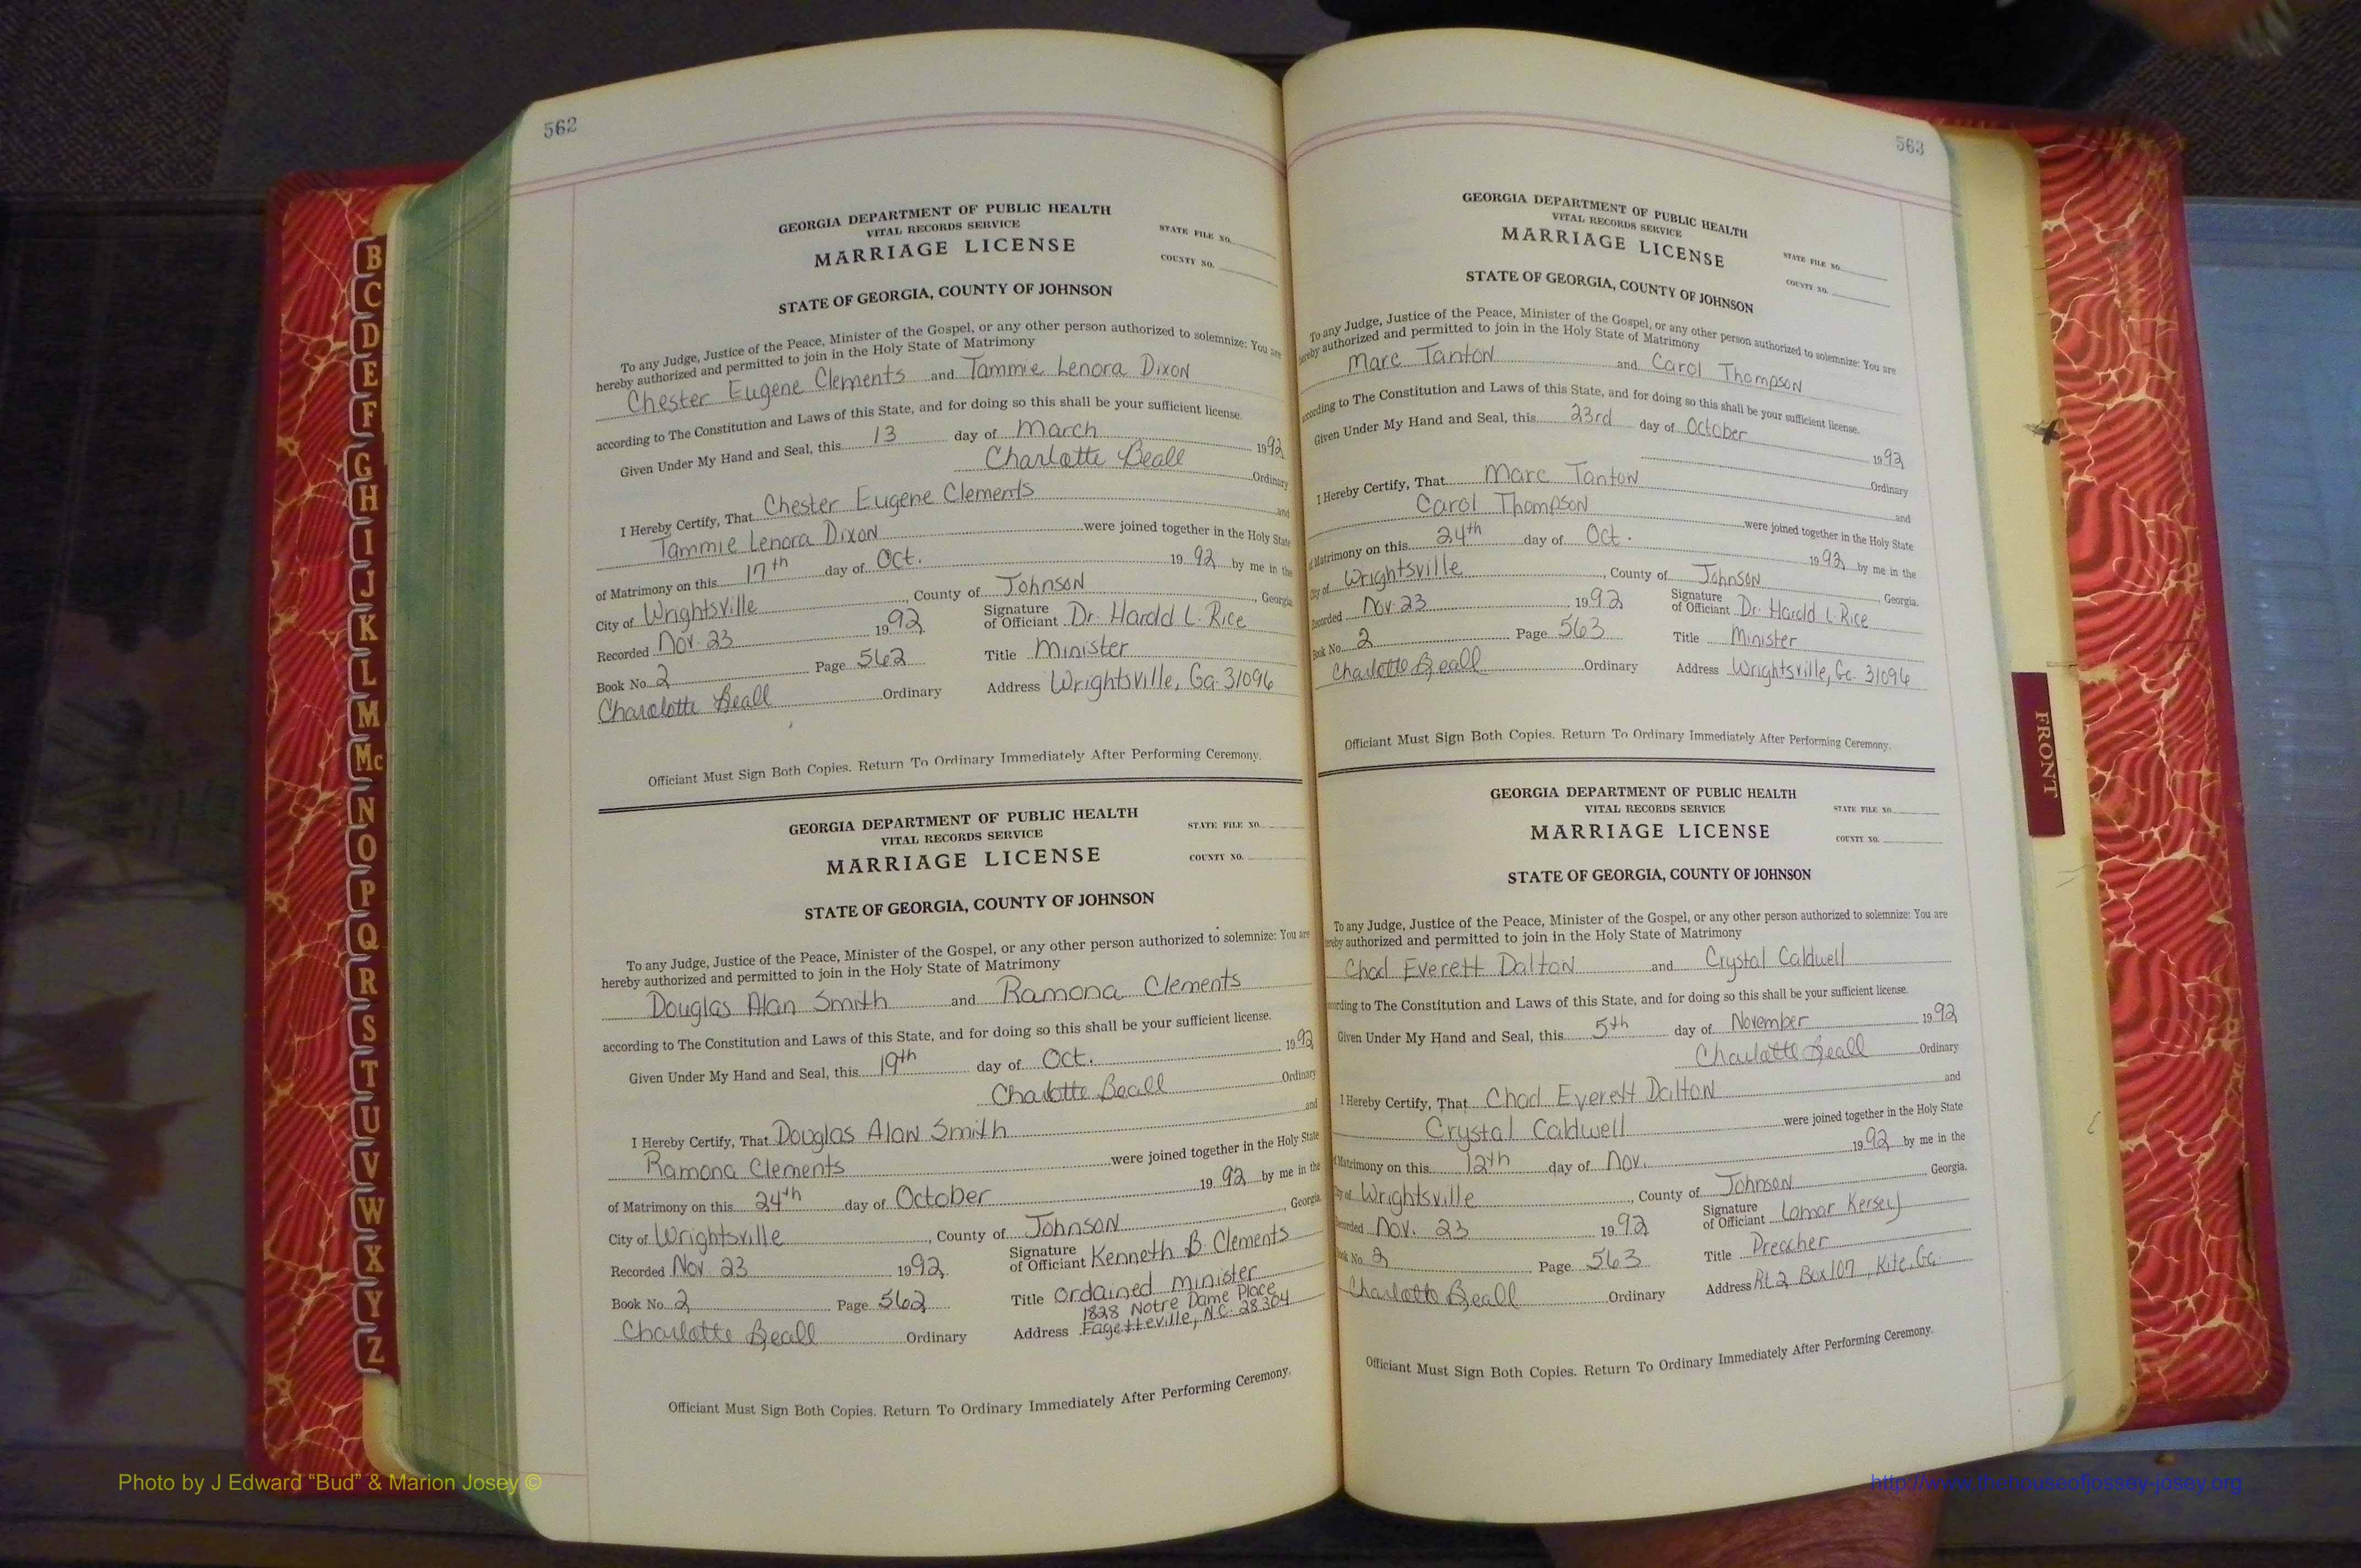 562
GEORGIA DEPARTMENT OF PUBLIC HEALTH
VITAL RECORDS SERVICE
MARRIAGE LICENSE
STATE FILE NO.
COUNTY NO.
STATE OF GEORGIA, COUNTY OF JOHNSON
To any Judge, Justice of the Peace, Minister of the Gospel, or any other person authorized to solemnize: You are
hereby authorized and permitted to join in the Holy State of Matrimony
Chester Eugene Clements and Tammie Lenora Dixon
according to The Constitution and Laws of this State, and for doing so this shall be your sufficient license.
Given Under My Hand and Seal, this 13 day of March 1992
Charlotte Beall Ordinary
I Hereby Certify, That Chester Eugene Clements and
Tammie Lenora Dixon were joined together in the Holy State
of Matrimony on this 17th day of Oct. 1992 by me in the
City of Wrightsville, County of Johnson, Georgia
Recorded Nov. 23 1992 Signature of Officiant Dr. Harold L. Rice
Book No. 2 Page 562 Title Minister
Charlotte Beall Ordinary Address Wrightsville, Ga. 31096
Officiant Must Sign Both Copies. Return To Ordinary Immediately After Performing Ceremony.
GEORGIA DEPARTMENT OF PUBLIC HEALTH
VITAL RECORDS SERVICE
MARRIAGE LICENSE
STATE FILE NO.
COUNTY NO.
STATE OF GEORGIA, COUNTY OF JOHNSON
To any Judge, Justice of the Peace, Minister of the Gospel, or any other person authorized to solemnize: You are
hereby authorized and permitted to join in the Holy State of Matrimony
Douglas Alan Smith and Ramona Clements
according to The Constitution and Laws of this State, and for doing so this shall be your sufficient license.
Given Under My Hand and Seal, this 19th day of Oct. 1992
Charlotte Beall Ordinary
I Hereby Certify, That Douglas Alan Smith and
Ramona Clements were joined together in the Holy State
of Matrimony on this 24th day of October 1992 by me in the
City of Wrightsville, County of Johnson, Georgia
Recorded Nov. 23 1992 Signature of Officiant Kenneth B. Clements
Book No. 2 Page 562 Title Ordained Minister
1828 Notre Dame Place
Charlotte Beall Ordinary Address Fagetteville, N.C. 28304
Officiant Must Sign Both Copies. Return To Ordinary Immediately After Performing Ceremony.
563
GEORGIA DEPARTMENT OF PUBLIC HEALTH
VITAL RECORDS SERVICE
MARRIAGE LICENSE
STATE FILE NO.
COUNTY NO.
STATE OF GEORGIA, COUNTY OF JOHNSON
To any Judge, Justice of the Peace, Minister of the Gospel, or any other person authorized to solemnize: You are
hereby authorized and permitted to join in the Holy State of Matrimony
Marc Tanton and Carol Thompson
according to The Constitution and Laws of this State, and for doing so this shall be your sufficient license.
Given Under My Hand and Seal, this 23rd day of October 1992
Ordinary
I Hereby Certify, That Marc Tanton and
Carol Thompson were joined together in the Holy State
of Matrimony on this 24th day of Oct. 1992 by me in the
City of Wrightsville, County of Johnson, Georgia.
Recorded Nov. 23 1992 Signature of Officiant Dr. Harold L. Rice
Book No. 2 Page 563 Title Minister
Charlotte Beall Ordinary Address Wrightsville, Ga. 31096
Officiant Must Sign Both Copies. Return To Ordinary Immediately After Performing Ceremony.
GEORGIA DEPARTMENT OF PUBLIC HEALTH
VITAL RECORDS SERVICE
MARRIAGE LICENSE
STATE FILE NO.
COUNTY NO.
STATE OF GEORGIA, COUNTY OF JOHNSON
To any Judge, Justice of the Peace, Minister of the Gospel, or any other person authorized to solemnize: You are
hereby authorized and permitted to join in the Holy State of Matrimony
Chad Everett Dalton and Crystal Caldwell
according to The Constitution and Laws of this State, and for doing so this shall be your sufficient license.
Given Under My Hand and Seal, this 5th day of November 1992
Charlotte Beall Ordinary
I Hereby Certify, That Chad Everett Dalton and
Crystal Caldwell were joined together in the Holy State
of Matrimony on this 12th day of Nov. 1992 by me in the
City of Wrightsville, County of Johnson Georgia.
Recorded Nov. 23 1992 Signature of Officiant Lamar Kersey
Book No. 2 Page 563 Title Preacher
Charlotte Beall Ordinary Address Rt. 2 Box 107, Kite, Ga.
Officiant Must Sign Both Copies. Return To Ordinary Immediately After Performing Ceremony.
B
C
D
E
F
G
H
I
J
K
L
M
Mc
N
O
P
Q
R
S
T
U
V
W
X
Y
Z
FRONT
Photo by J Edward “Bud” & Marion Josey ©
http://www.thehouseofjossey-josey.org